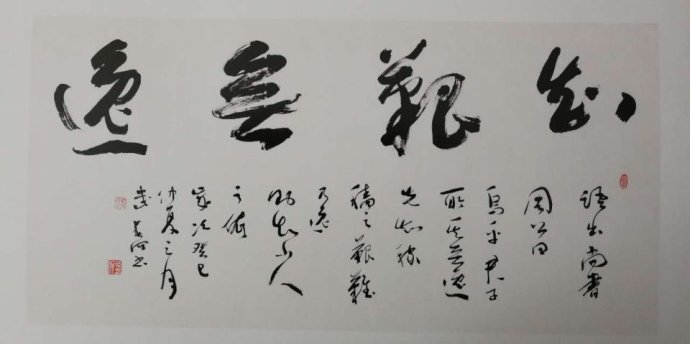 知艱無逸
語出尚書
周公曰
烏乎君子
所其無逸
先知稼
穡之艱難
乃逸
則知小人
之依
歲次癸巳
仲夏之月
書